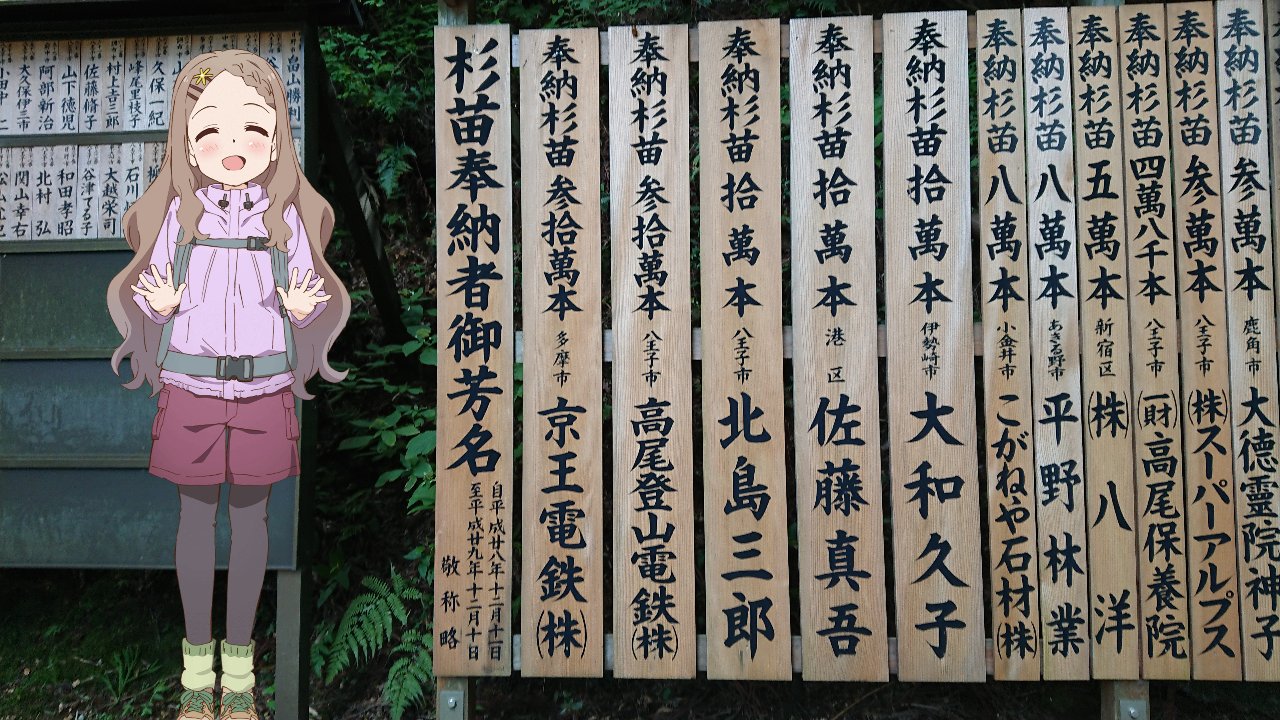 杉苗奉納者御芳名
自平成廿八年十二月十一日
至平成廿九年十二月十日
敬称略
奉納杉苗 参拾萬本 多摩市 京王電鉄(株)
奉納杉苗 参拾萬本 八王子市 高尾登山電鉄(株)
奉納杉苗 拾萬本 八王子市 北島三郎
奉納杉苗 拾萬本 港区 佐藤真吾
奉納杉苗 拾萬本 伊勢崎市 大和久子
奉納杉苗 八萬本 小金井市 こがねや石材(株)
奉納杉苗 八萬本 あきる野市 平野林業
奉納杉苗 五萬本 新宿区 (株)八洋
奉納杉苗 四萬八千本 八王子市 (一財)高尾保養院
奉納杉苗 参萬本 八王子市 (株)スーパーアルプス
奉納杉苗 参萬本 鹿角市 大徳霊院神子
畠山勝利
久保一紀
峰尾里枝子
村上吉三郎
佐藤脩子
山下徳児
阿部新治
大久保伊三市
石川
大越栄司
谷津てる子
和田孝昭
北村弘
関山幸右